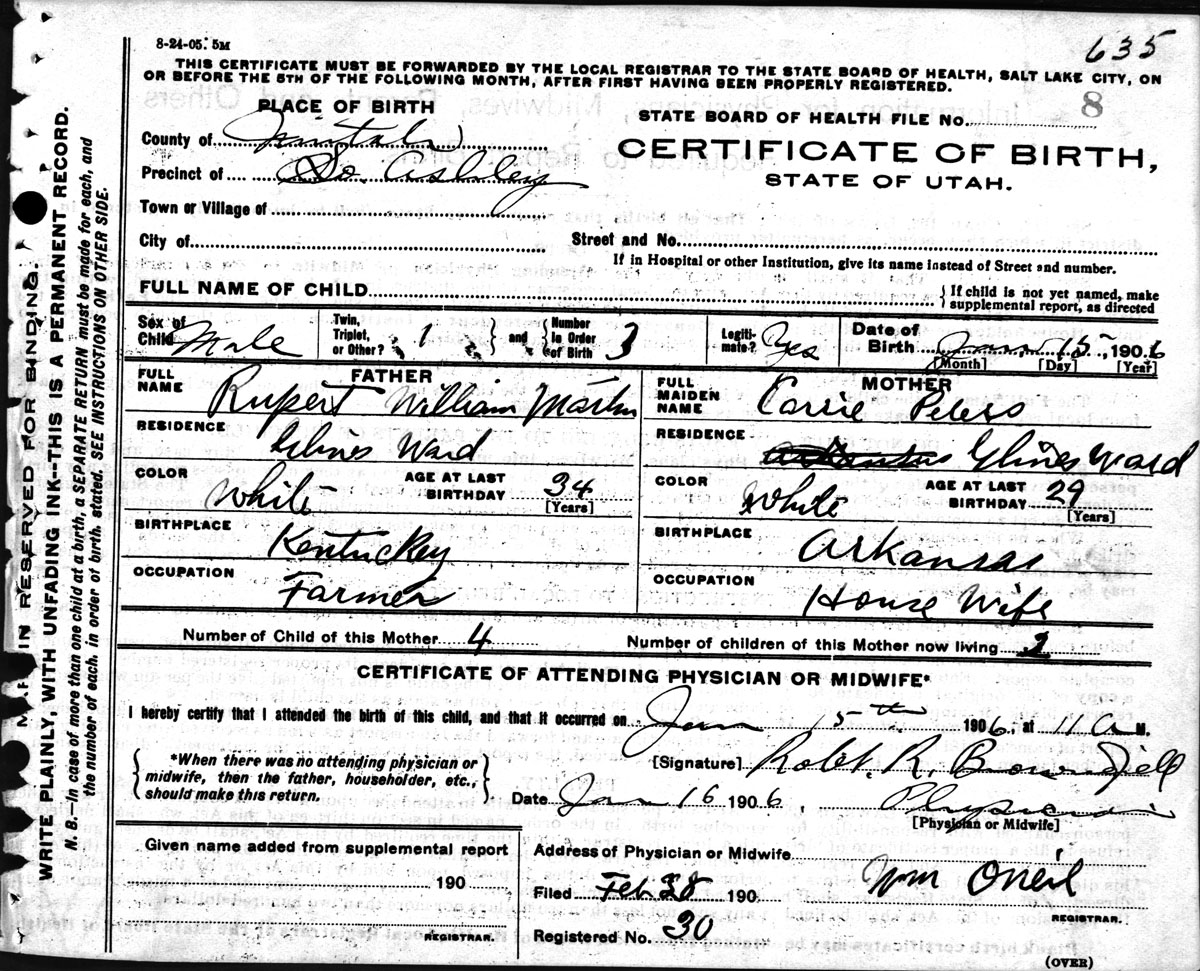 8-24-05. 5M
635
THIS CERTIFICATE MUST BE FORWARDED BY THE LOCAL REGISTRAR TO THE STATE BOARD OF HEALTH, SALT LAKE CITY, ON
OR BEFORE THE 5TH OF THE FOLLOWING MONTH, AFTER FIRST HAVING BEEN PROPERLY REGISTERED.
PLACE OF BIRTH
STATE BOARD OF HEALTH FILE No. 8
County of Uintah
CERTIFICATE OF BIRTH,
Precinct of So. Ashley
STATE OF UTAH.
Town or Village of
City of
Street and No.
If in Hospital or other Institution, give its name instead of Street and number.
FULL NAME OF CHILD
{If child is not yet named, make
supplemental report, as directed
Sex of Child Male
Twin, Triplet, or Other? 1 } and { Number in Order of Birth 3
Legiti-mate? Yes
Date of Birth 15, 1906
[Month] [Day] [Year]
FATHER
MOTHER
FULL NAME Rupert William Martin
FULL MAIDEN NAME Carrie Peters
RESIDENCE Glines Ward
RESIDENCE Arkansas Glines Ward
COLOR White AGE AT LAST BIRTHDAY 34 [Years]
COLOR White AGE AT LAST BIRTHDAY 29 [Years]
BIRTHPLACE Kentuckey
BIRTHPLACE Arkansas
OCCUPATION Farmer
OCCUPATION House Wife
Number of Child of this Mother 4
Number of children of this Mother now living 3
CERTIFICATE OF ATTENDING PHYSICIAN OR MIDWIFE*
I hereby certify that I attended the birth of this child, and that it occurred on Jan 15th 1906, at 11 A M.
{*When there was no attending physician or
midwife, then the father, householder, etc.,
should make this return.}
[Signature] Robt. R. Brownfiell
Date Jan 16 1906, Physician
[Physician or Midwife]
Given name added from supplemental report
Address of Physician or Midwife
190
Filed Feb 28 190
Wm Oneil
REGISTRAR.
REGISTRAR.
Registered No. 30
(OVER)
MARGIN RESERVED FOR BANDING.
WRITE PLAINLY, WITH UNFADING INK--THIS IS A PERMANENT RECORD.
N. B.--In case of more than one child at a birth, a SEPARATE RETURN must be made for each, and
the number of each, in order of birth, stated. SEE INSTRUCTIONS ON OTHER SIDE.